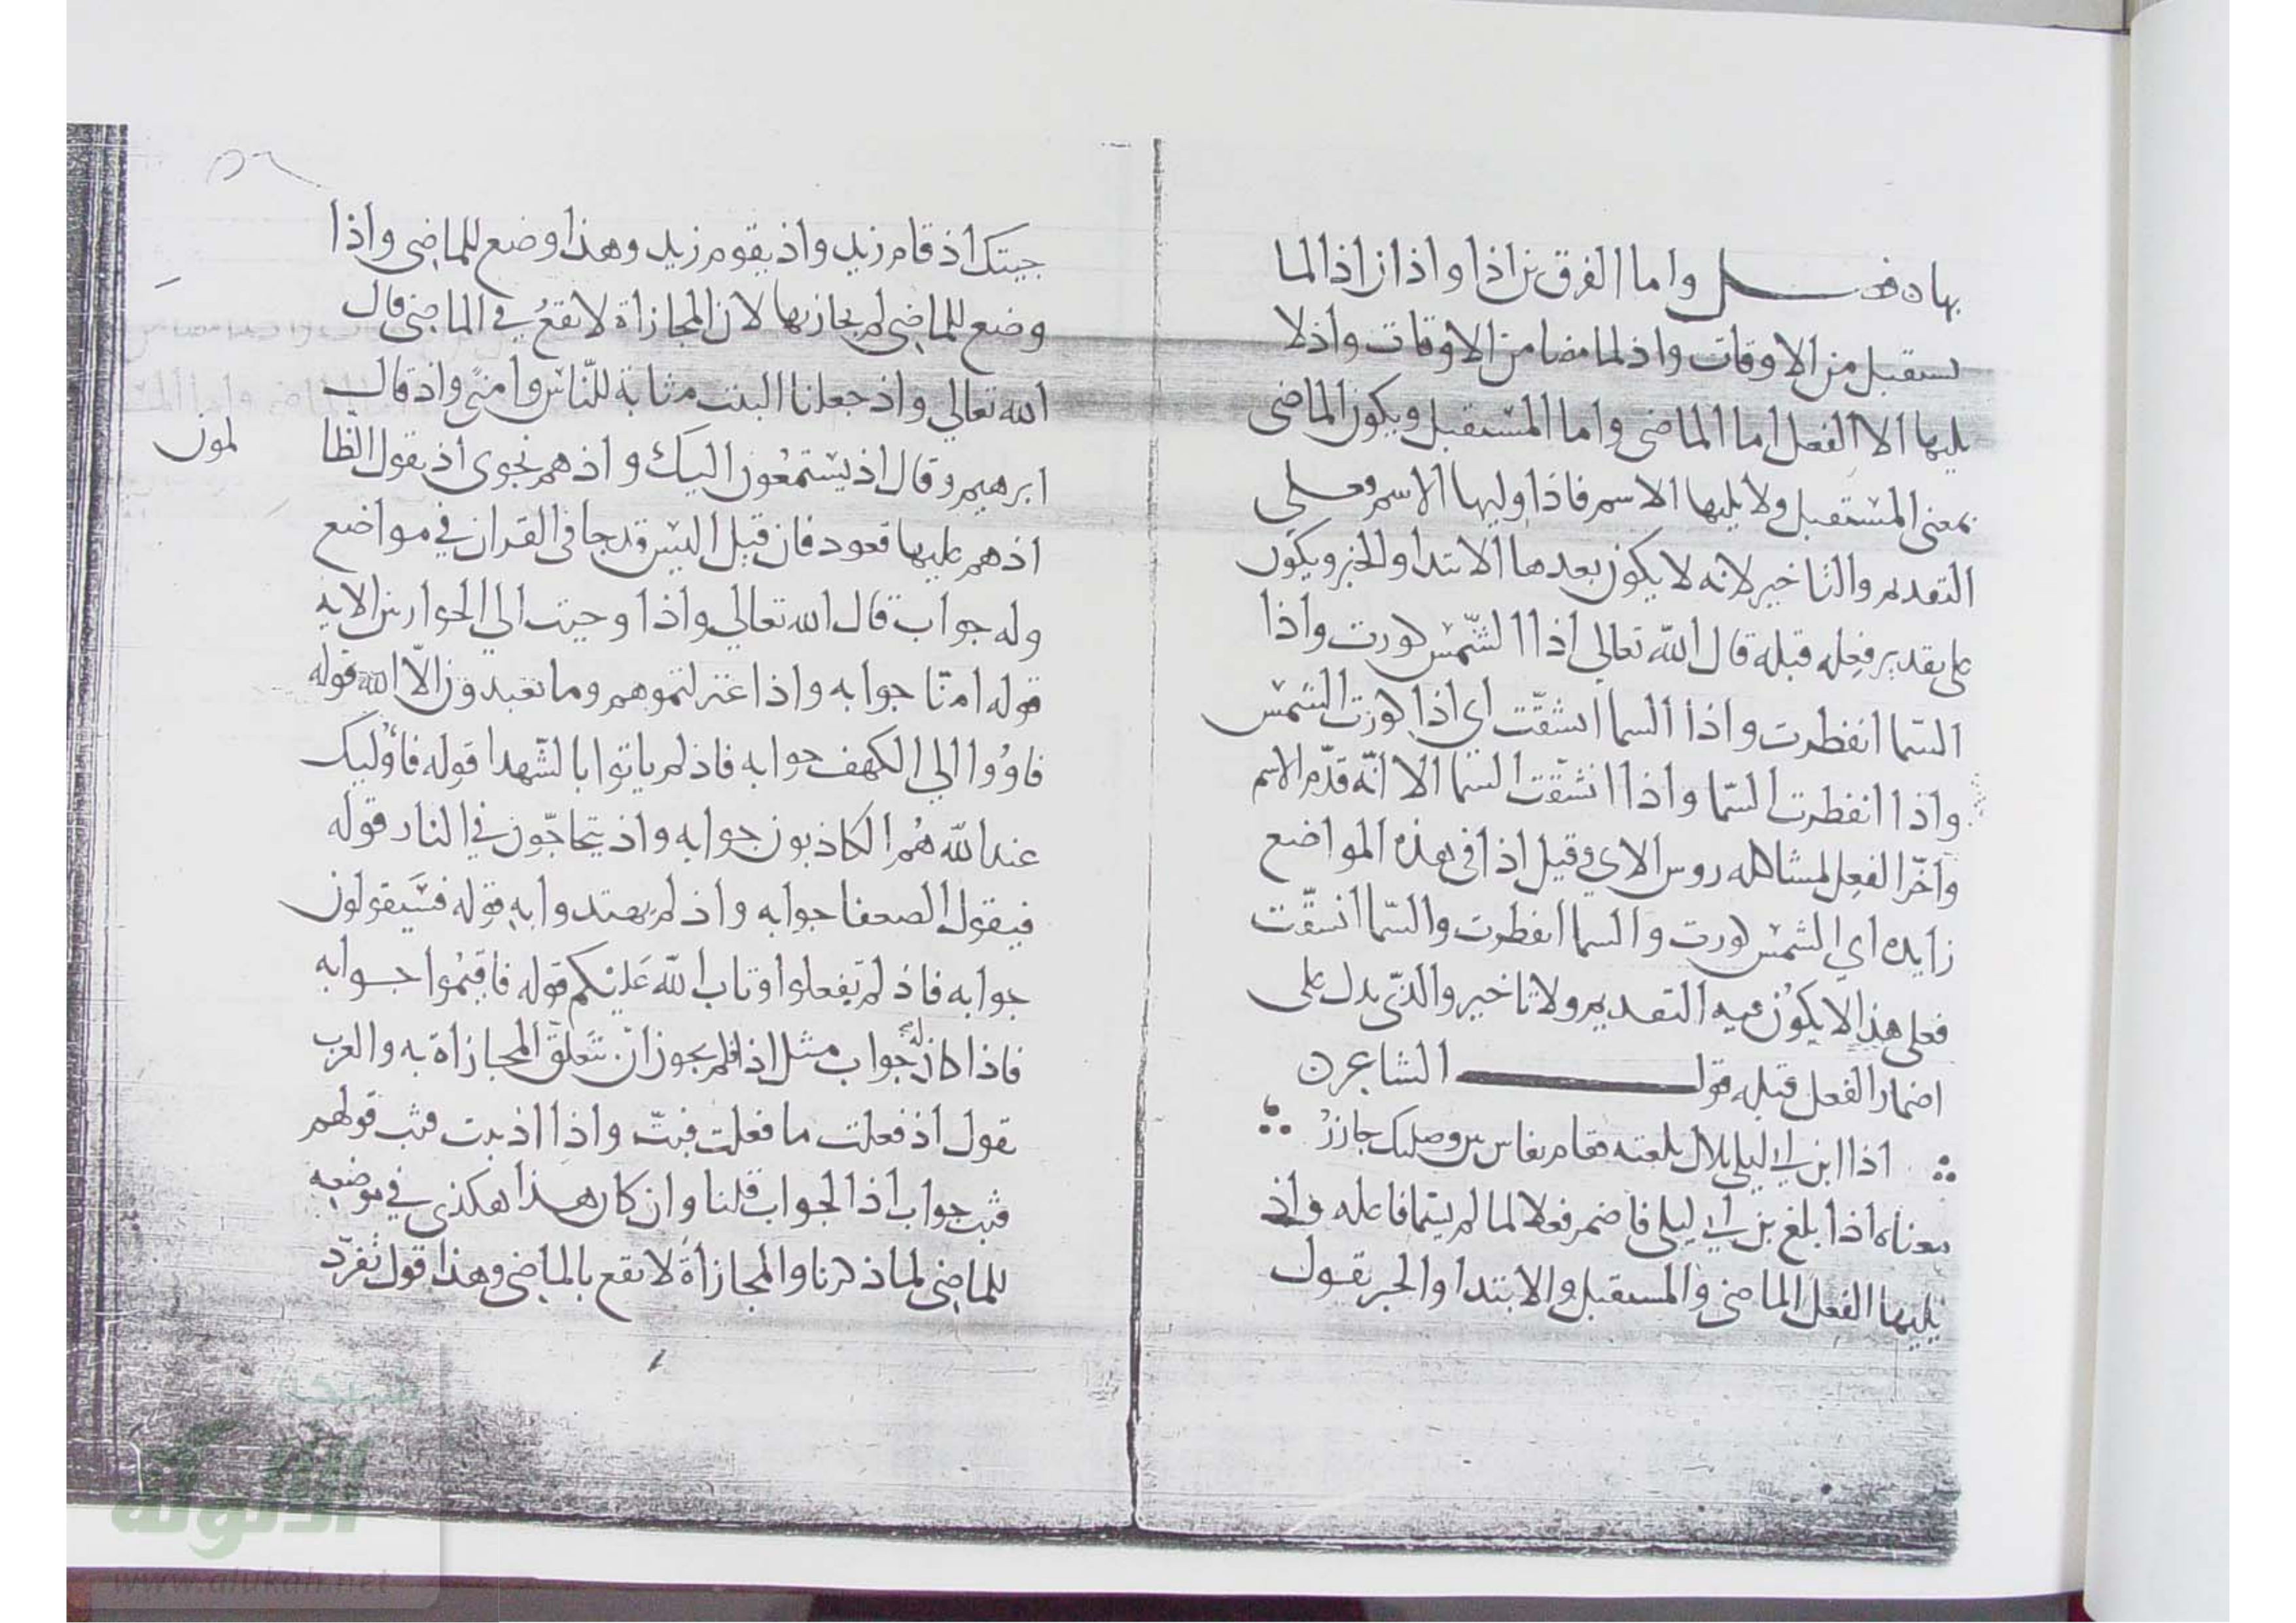 بها ه فصل واما الفرق بين اذا واذ ان اذا لما
يستقبل من الاوقات واذ لما مضا من الاوقات واذ لا
يليها الا الفعل اما الماضي واما المستقبل ويكون الماضي
بمعنى المستقبل ولا يليها الاسم فاذا وليها الاسم فعلى
التقديم والتاخير لانه لا يكون بعدها الابتدا والخبر ويكون
على تقدير فعله قبله قال الله تعالى اذا الشمس كورت واذا
السما انفطرت واذا السما انشقت اي اذا كورت الشمس
واذا انفطرت السما واذا انشقت السما الا انه قدم الاسم
واخر الفعل لمشاكله روس الاي وقيل اذا في هذه المواضع
زايده اي الشمس كورت والسما انفطرت والسما انشقت
فعلى هذا لا يكون فيه التقديم ولا تاخير والذي يدل على
اضمار الفعل قبله قول الشاعر ه
اذا ابن ابي ليلى بلال بلغته فقام بفاس بين وصليك جازر
معناه اذا بلغ بن ابي ليلى فاضمر فعلا لما لم يسما فاعله واذ
يليها الفعل الماضي والمستقبل والابتدا والخبر يقول
جيتك اذ قام زيد واذ يقوم زيد وهذا وضع للماضي واذا
وضع للماضي لم يجاز بها لان المجازاة لا تقع في الماضي قال
الله تعالى واذ جعلنا البيت مثابة للناس وامنى واذ قال
ابرهيم وقال اذ يستمعون اليك واذ هم نجوى اذ يقول الظا
لمون
اذ هم عليها قعود فان قيل اليس قد جا في القران في مواضع
وله جواب قال الله تعالى واذا وحيت الى الحوارين الايه
قوله امنا جوابه واذا عتزلتموهم وما تعبدون الا الله قوله
فاووا الى الكهف جوابه فاذ لم ياتوا بالشهدا قوله فاوليك
عند الله هم الكاذبون جوابه واذ يتحاجون في النار قوله
فيقول الضعفا جوابه واذ لم يهتدوا به قوله فسيقولون
جوابه فاذ لم تفعلوا وتاب الله عليكم قوله فاقيموا جوابه
فاذا كان له جواب مثل اذا فلم يجوز ان تتعلق المجازاة به والعرب
يقول اذ فعلت ما فعلت فبت واذا اذ بت فثب قولهم
فثب جواب اذا الجواب قلنا وان كان هذا هكذى في موضعه
للماضي لما ذكرنا والمجازاة لا تقع بالماضي وهذا قول تفرد
شبكة
الألوكة
www.alukah.net